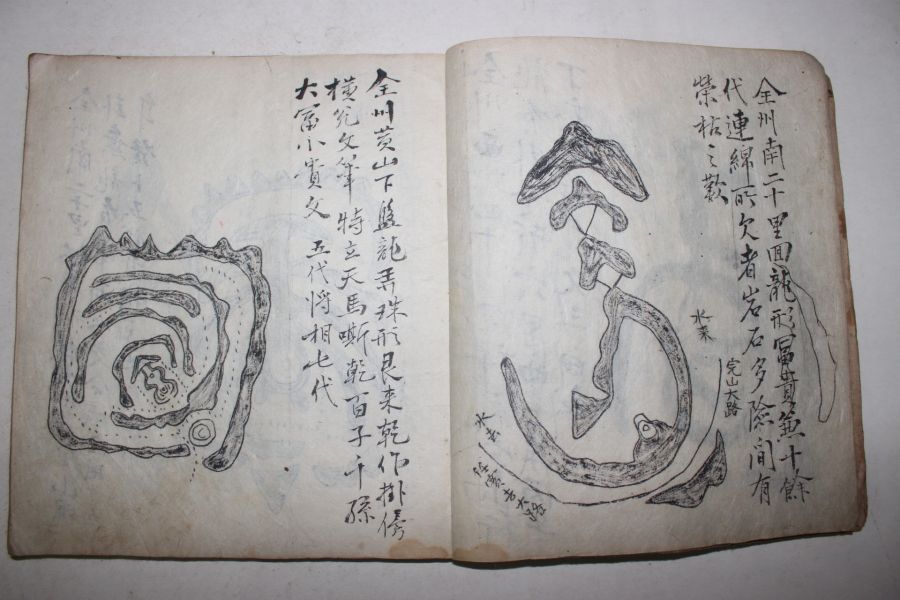 全州南二十里回龍形冨貴兼十餘
代連綿所欠者岩石多險間有
榮枯之歎
水来
完山大路
水去
全州黄山下盤龍弄珠形艮来乾作掛傍
橫符文筆特立天馬嘶乾百子千孫
大富小貴文 五代将相七代